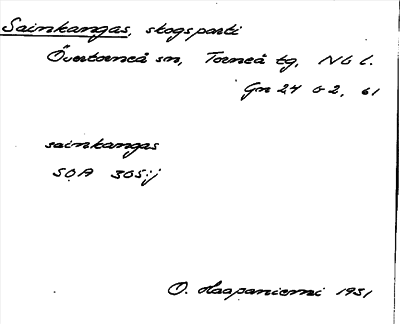 Sainkangas, skogsparti
Övertorneå sn, Torneå tg, Nb l.
Gn 24 G 2, 61
sainkangas
SOA 305:j
O. Haapaniemi 1931